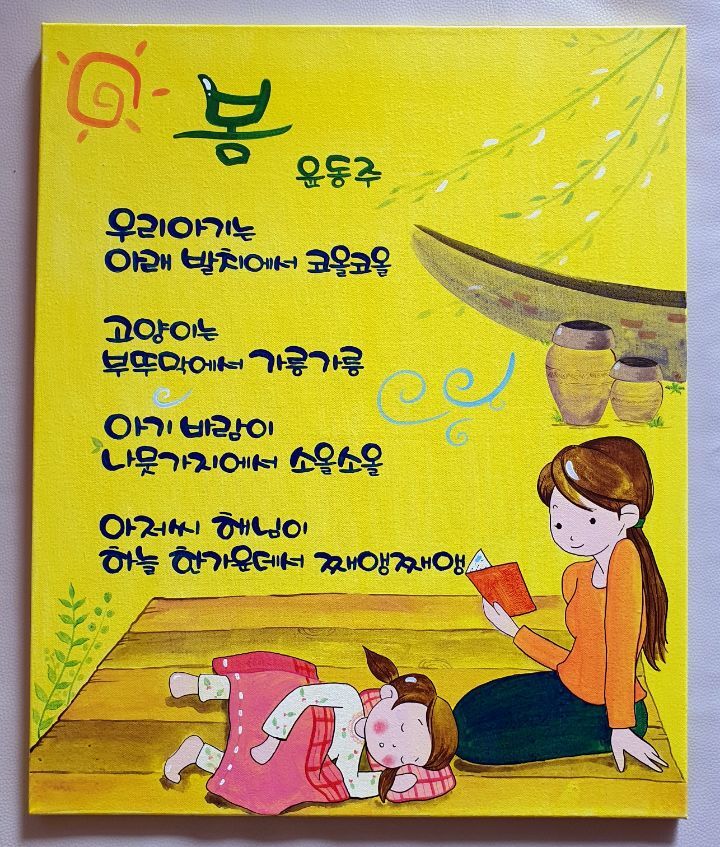 봄
윤동주
우리아기는
아래 발치에서 코올코올
고양이는
부뚜막에서 가릉가릉
아기 바람이
나뭇가지에서 소올소올
아저씨 해님이
하늘 한가운데서 째앵째앵